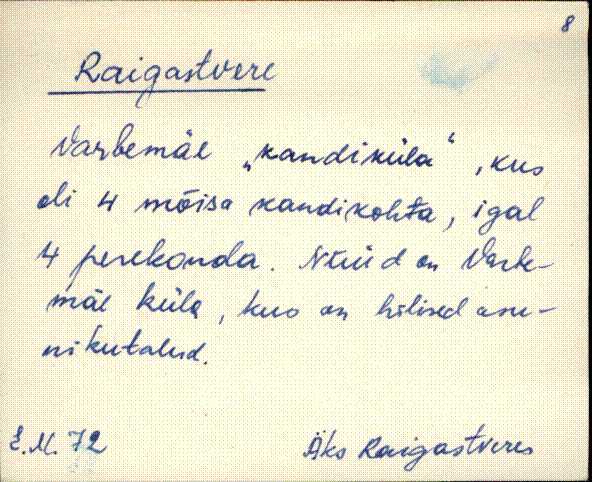 8
Raigastvere
Varbemäe „kandiküla“, kus
oli 4 mõisa kandikohta, igal
4 perekonda. Nüüd on Varbe-
mäe küla, kus on hilised asu-
nikutalud.
E.M. 72 Äks Raigastveres